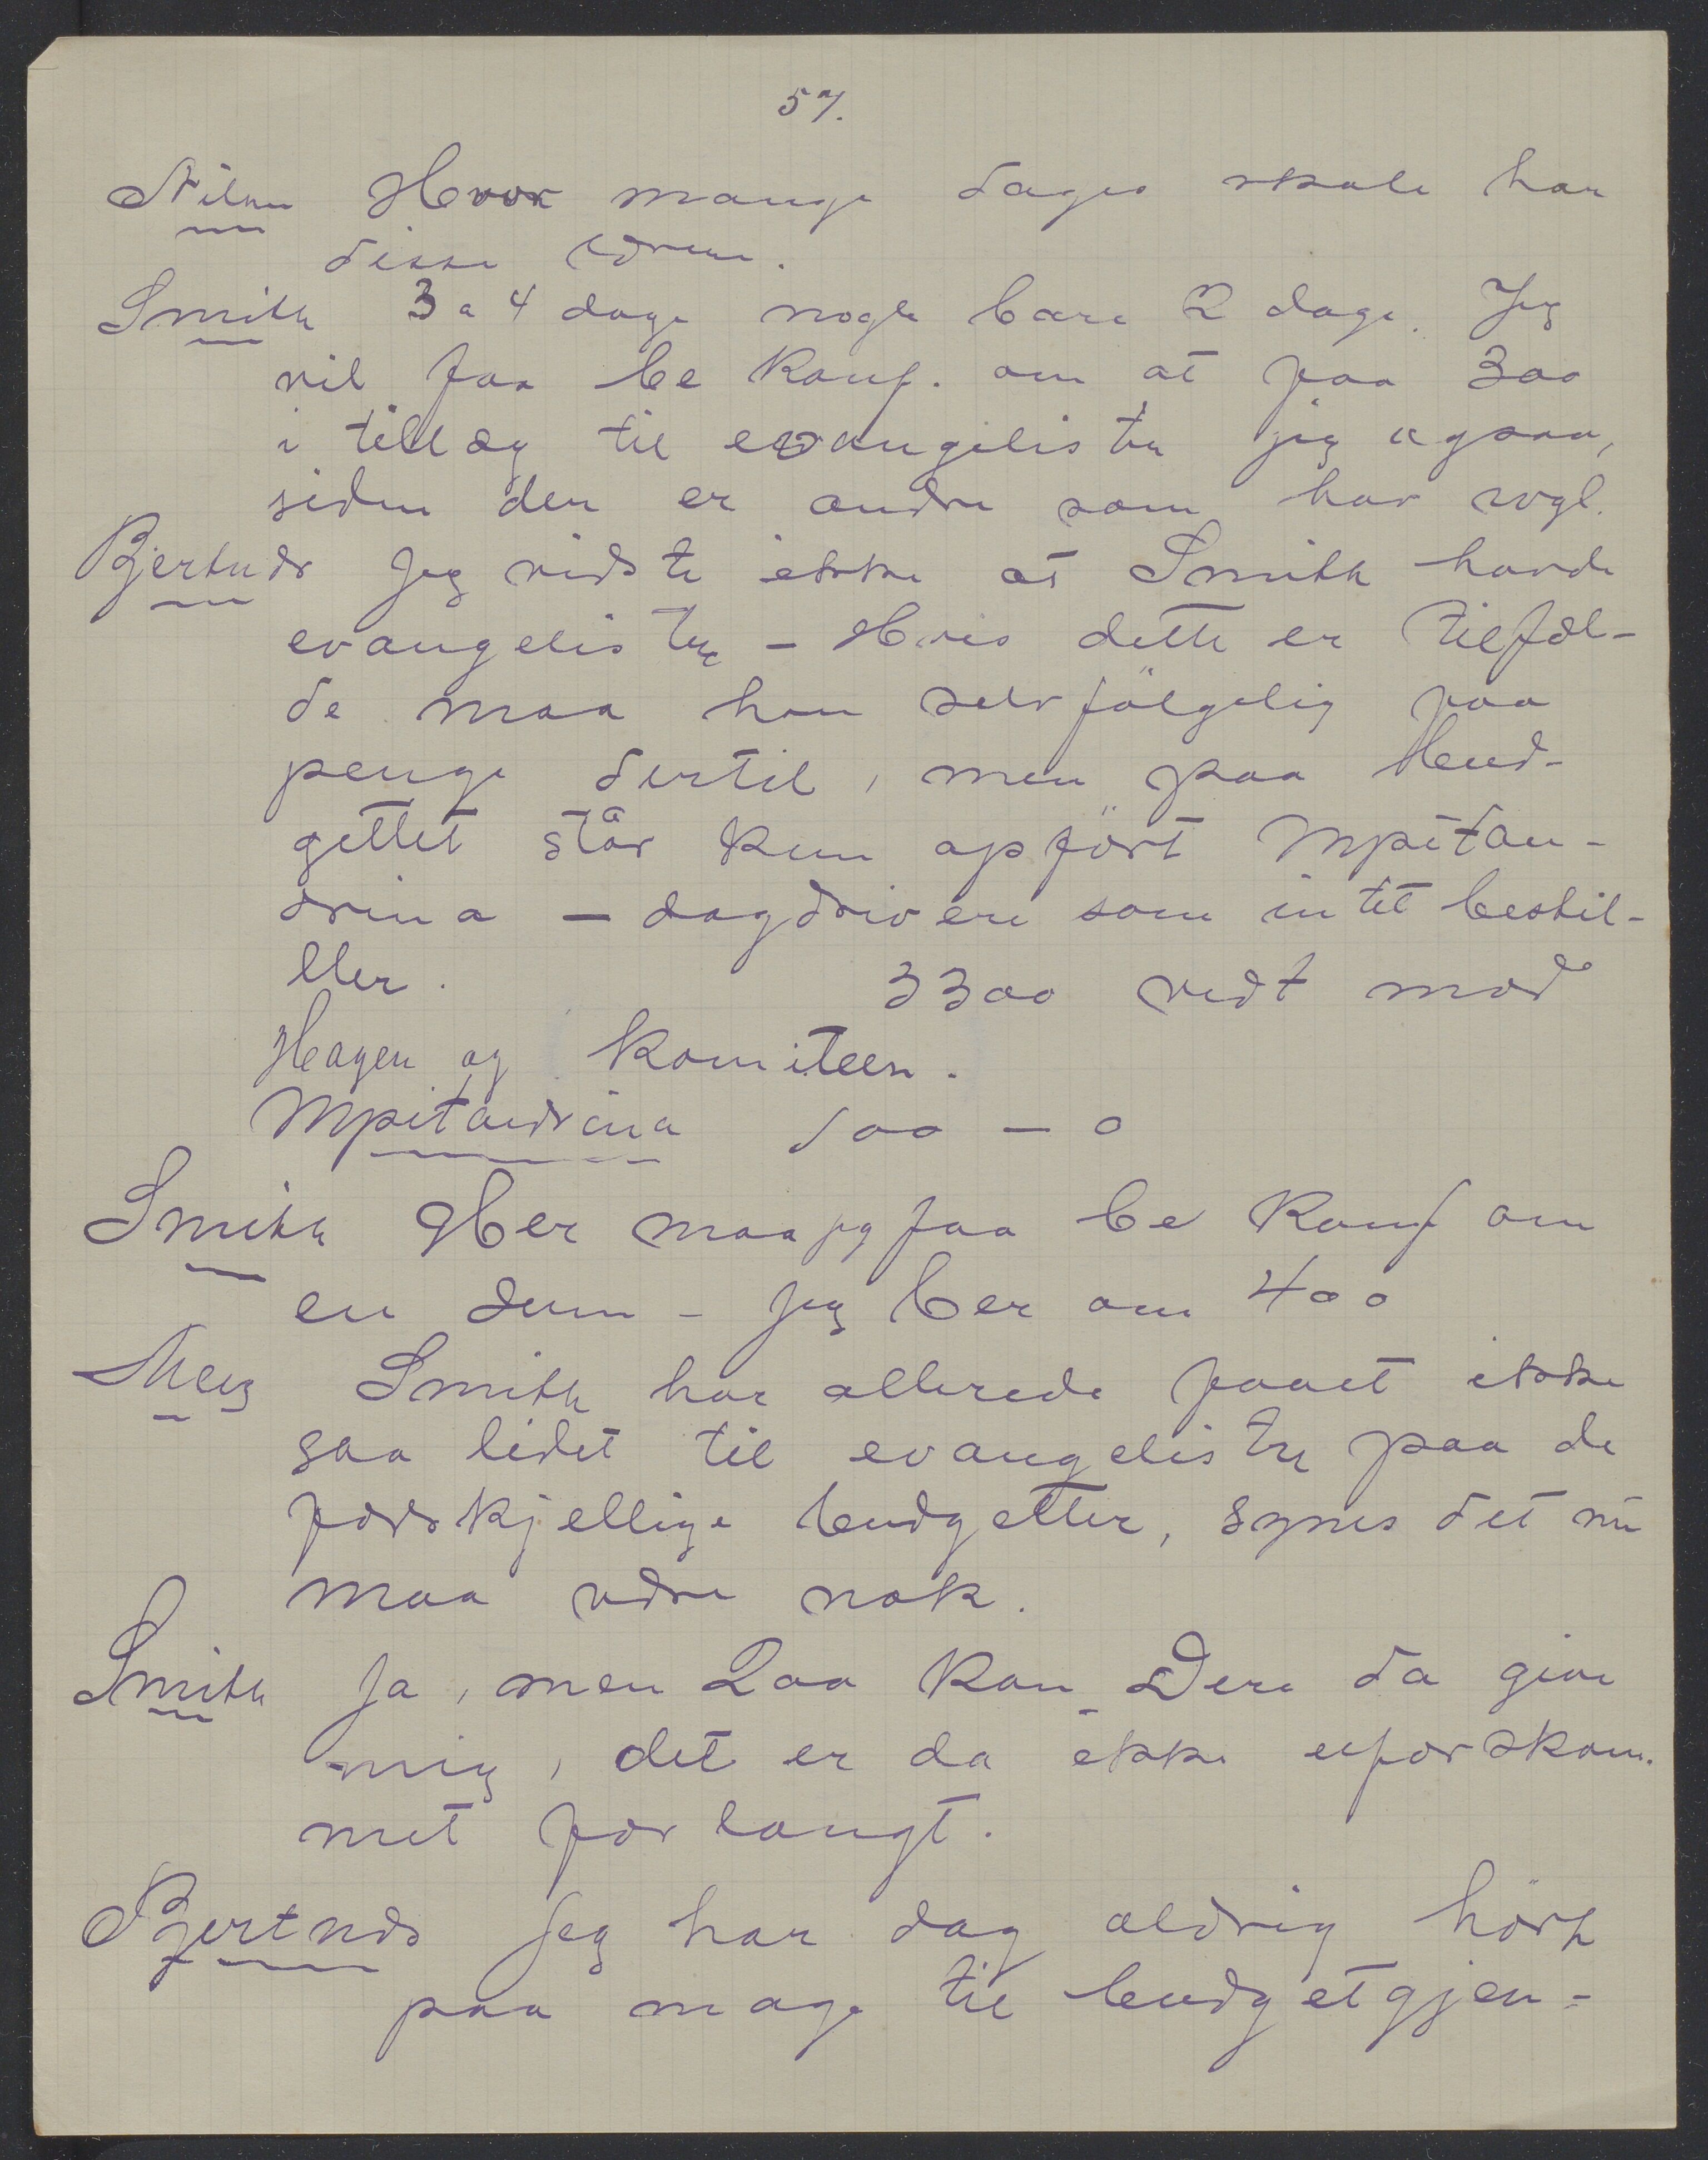 57.
Nilsen Hvor mange dages skole har
disse lærere.
Smith 3 a 4 dage nogle bare 2 dage. Jeg
vil faa be Konf. om at faa 300
i tillæg til evangelister jeg ogsaa,
siden der er andre som har
Bjertnæs Jeg vidste ikke at Smith havde
evangelister - Hvis dette er tilfæl-
de maa han selvfölgelig faa
penge dertil, men paa bud-
gettet står kun opført Mpitan-
drina - dagdrivere som intet bestil-
ller. 3300 vedt mod
Hagen og Komiteen.
Mpitandrina 500 - 0
Smith Her maa jeg faa be Konf om
en sum - jeg ber om 400
Meeg Smith har allerede faaet ikke
saa lidet til evangelister paa de
forskjellige budgetter, synes det nu
maa være nok.
Smith Ja, men 200 kan Dere da give
mig, det er da ikke uforskam-
met forlangt.
Bjertnæs Jeg har dog aldrig hört
paa mage til budgetgjen-